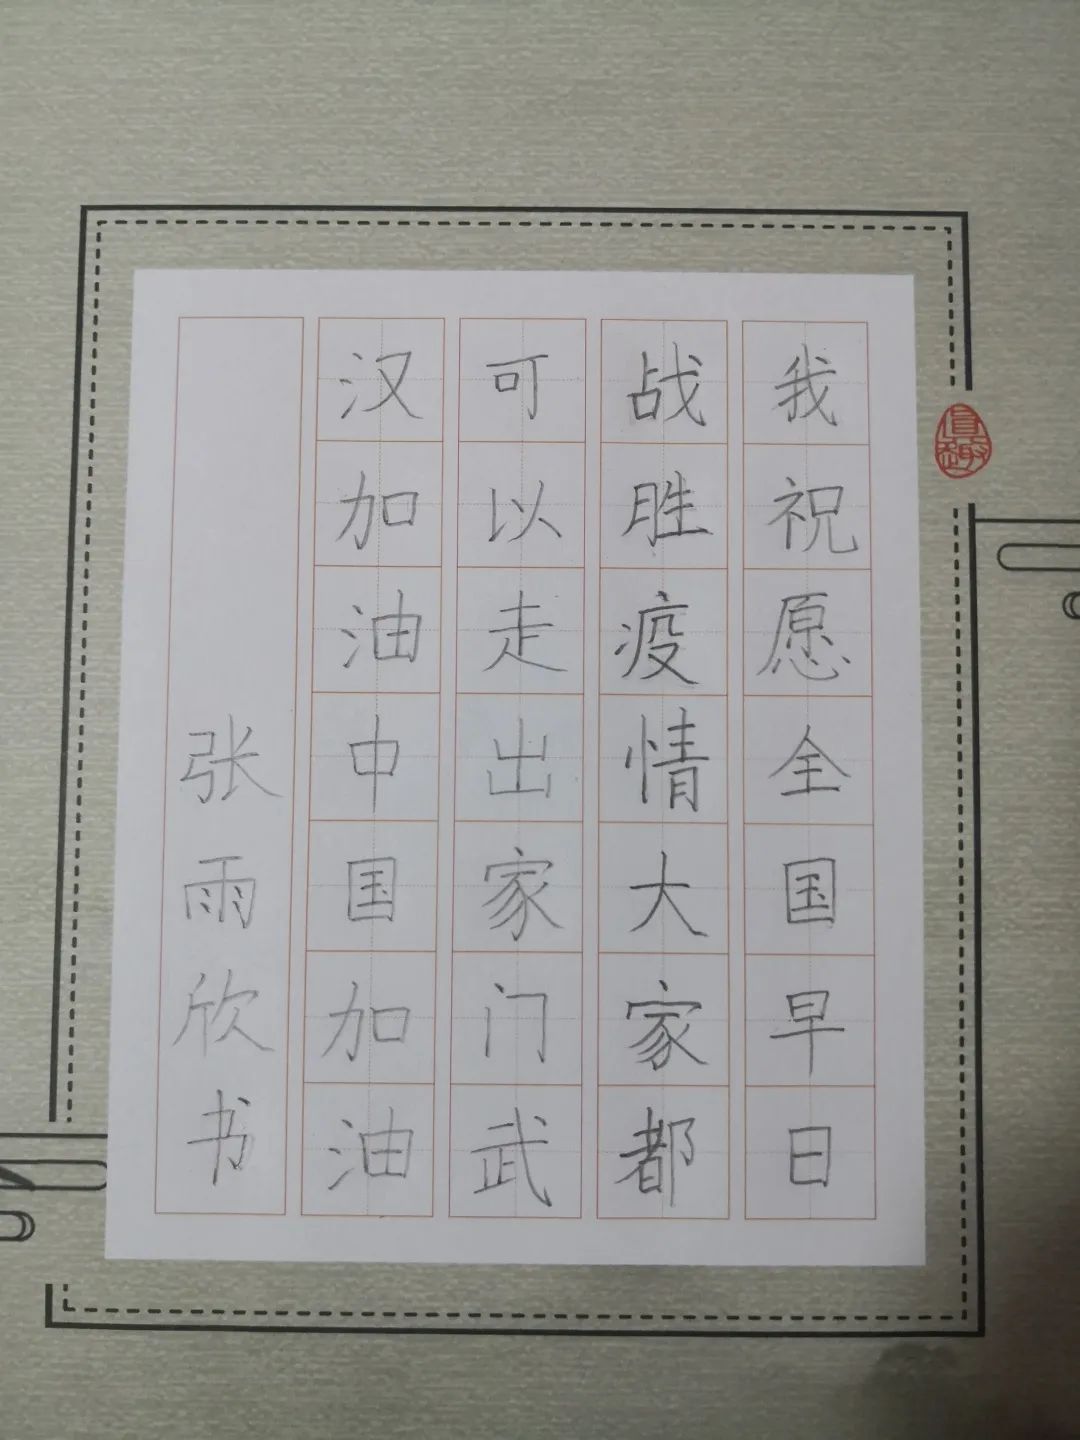 我祝愿全国早日
战胜疫情大家都
可以走出家门武
汉加油中国加油
张雨欣书